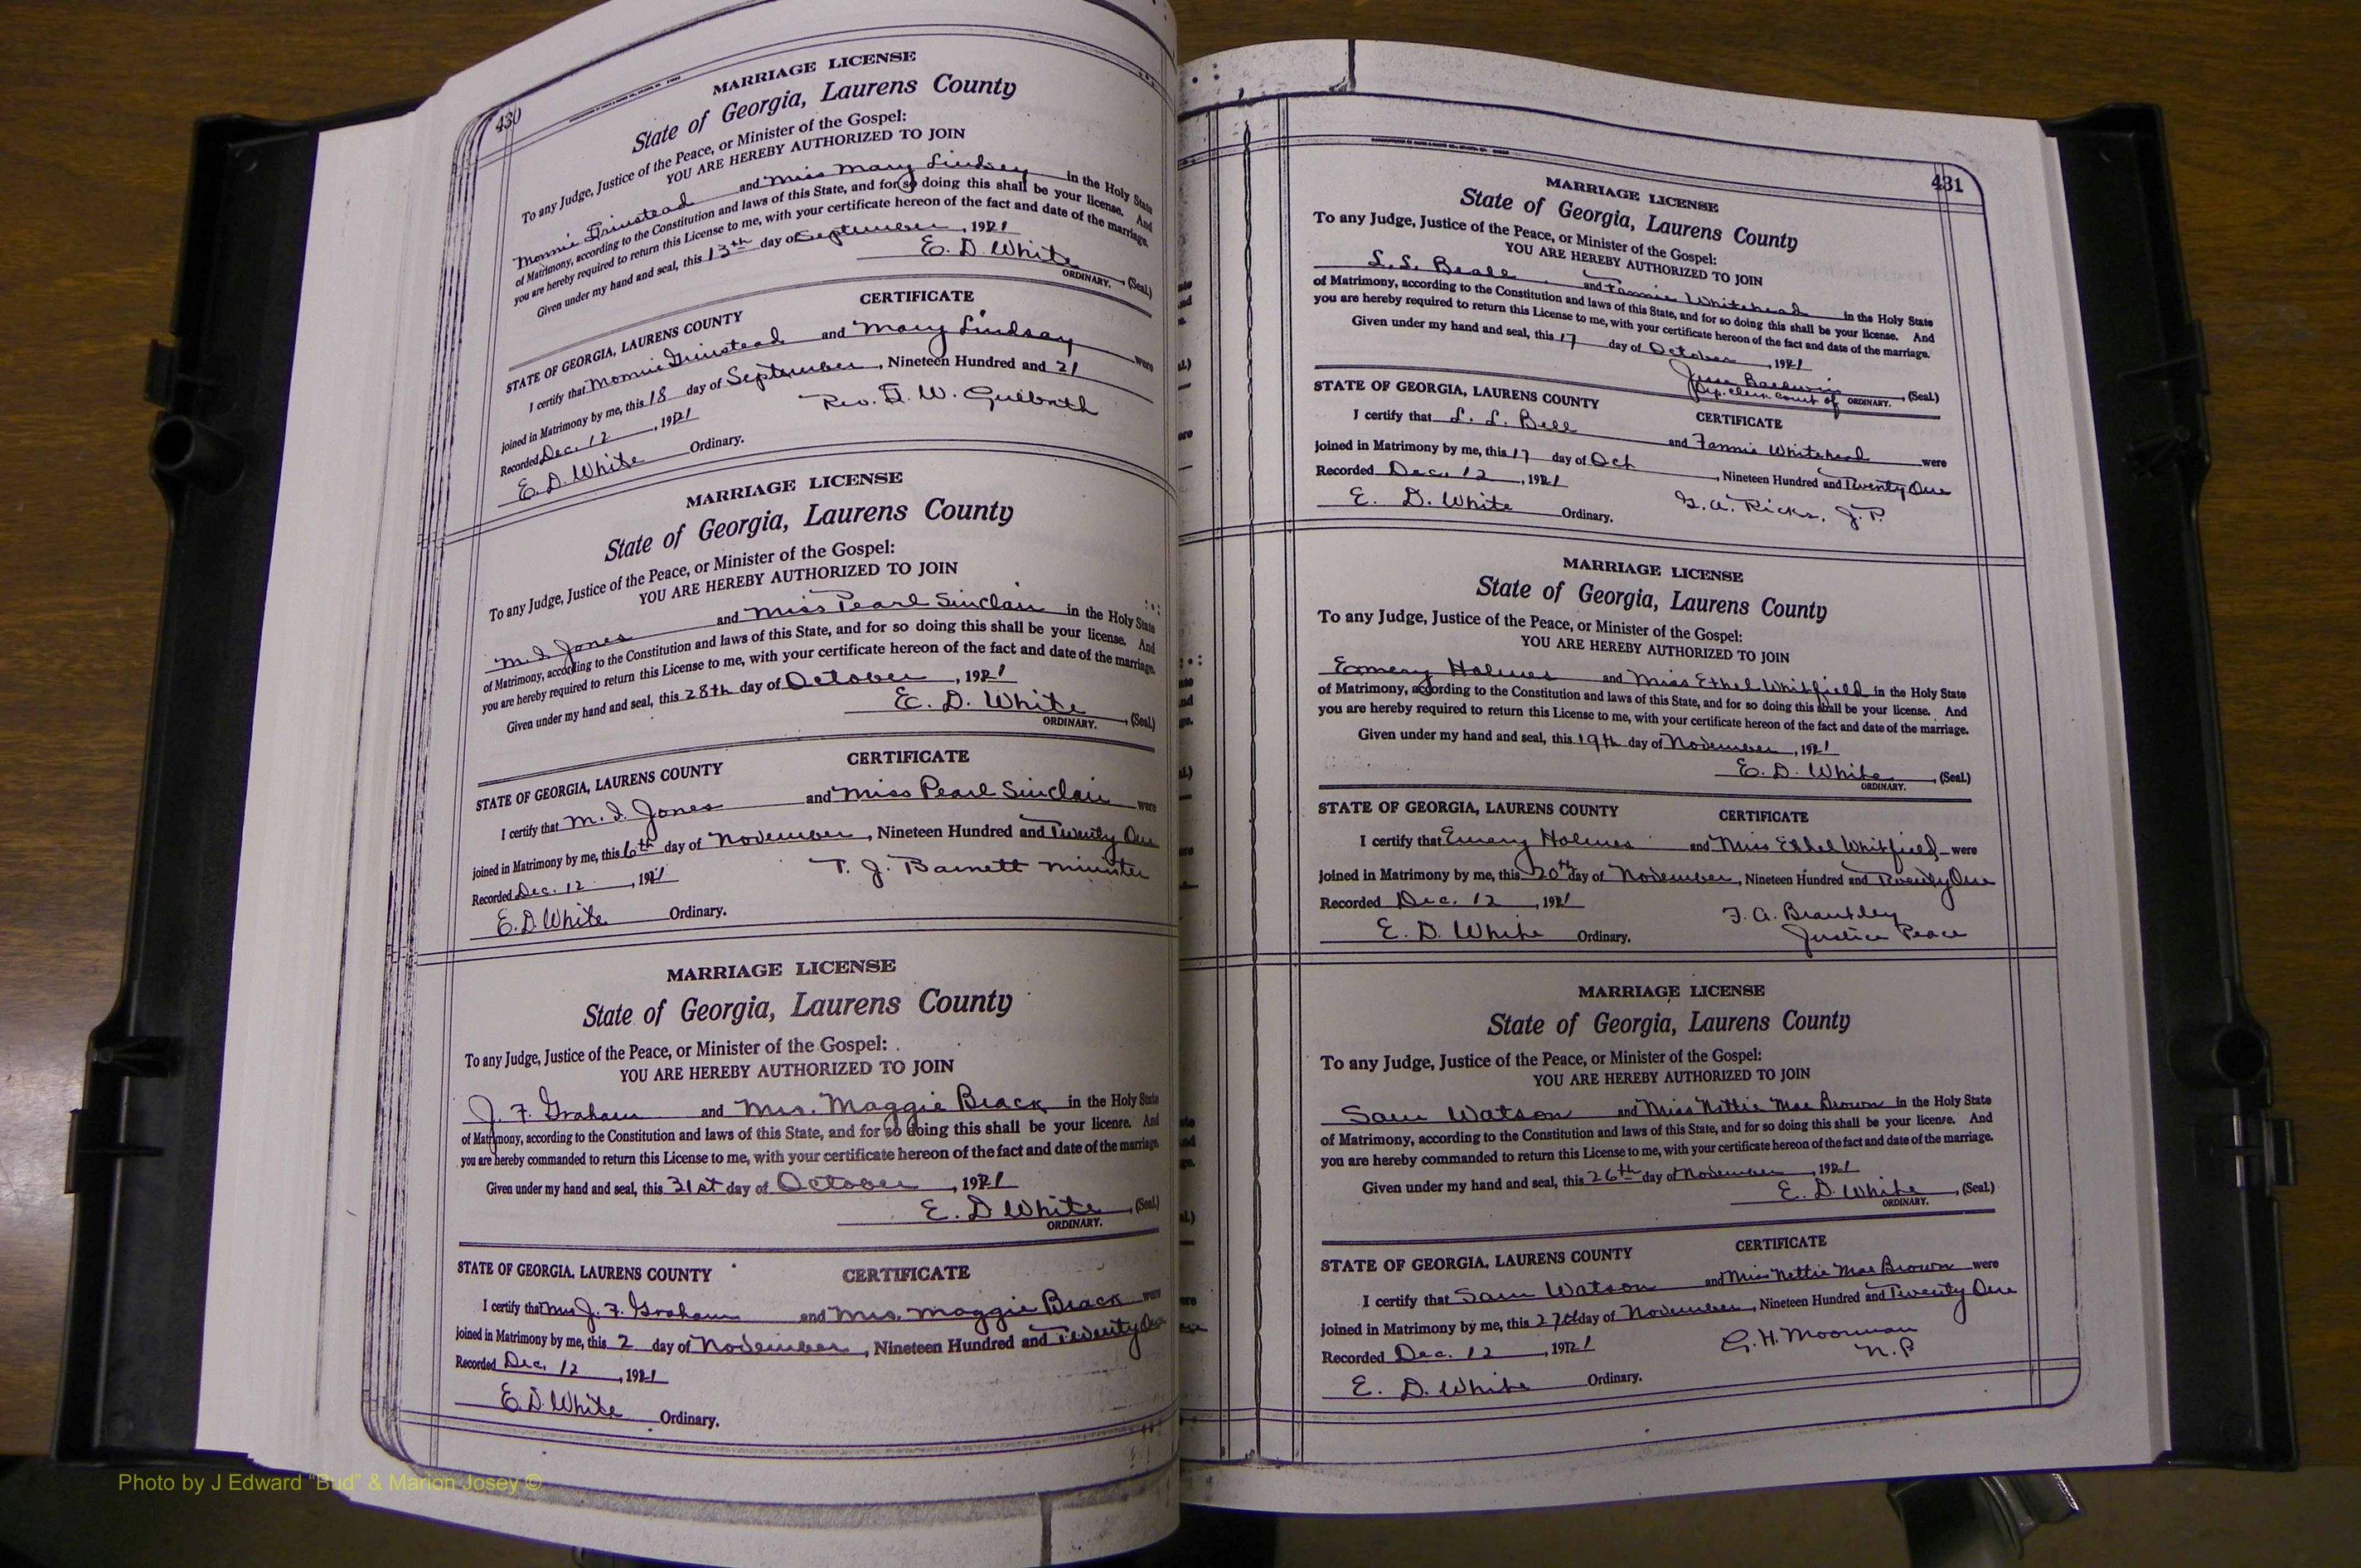 430
MARRIAGE LICENSE
State of Georgia, Laurens County
To any Judge, Justice of the Peace, or Minister of the Gospel:
YOU ARE HEREBY AUTHORIZED TO JOIN
Monnie Grinstead and Miss Mary Lindsey in the Holy State
of Matrimony, according to the Constitution and laws of this State, and for so doing this shall be your license. And
you are hereby required to return this License to me, with your certificate hereon of the fact and date of the marriage.
Given under my hand and seal, this 13th day of September, 1921
E. D. White (Seal.)
ORDINARY.
CERTIFICATE
STATE OF GEORGIA, LAURENS COUNTY
I certify that Monnie Grinstead and Mary Lindsay were
joined in Matrimony by me, this 18 day of September, Nineteen Hundred and 21
Recorded Dec. 12, 1921
Rev. W.
E. D. White Ordinary.
MARRIAGE LICENSE
State of Georgia, Laurens County
To any Judge, Justice of the Peace, or Minister of the Gospel:
YOU ARE HEREBY AUTHORIZED TO JOIN
M. I. Jones and Miss Pearl Sinclair in the Holy State
of Matrimony, according to the Constitution and laws of this State, and for so doing this shall be your license. And
you are hereby required to return this License to me, with your certificate hereon of the fact and date of the marriage.
Given under my hand and seal, this 28th day of October, 1921
E. D. White (Seal.)
ORDINARY.
CERTIFICATE
STATE OF GEORGIA, LAURENS COUNTY
I certify that M. I. Jones and Miss Pearl Sinclair were
joined in Matrimony by me, this 6th day of November, Nineteen Hundred and Twenty One
Recorded Dec. 12, 1921
T. J. Barnett minister
E. D. White Ordinary.
MARRIAGE LICENSE
State of Georgia, Laurens County
To any Judge, Justice of the Peace, or Minister of the Gospel:
YOU ARE HEREBY AUTHORIZED TO JOIN
J. F. Graham and Mrs. Maggie Brack in the Holy State
of Matrimony, according to the Constitution and laws of this State, and for so doing this shall be your license. And
you are hereby commanded to return this License to me, with your certificate hereon of the fact and date of the marriage.
Given under my hand and seal, this 31st day of October, 1921
E. D White (Seal.)
ORDINARY.
STATE OF GEORGIA, LAURENS COUNTY CERTIFICATE
I certify that J. F. Graham and Mrs. Maggie Brack were
joined in Matrimony by me, this 2 day of November, Nineteen Hundred and Twenty One
Recorded Dec. 12, 1921
E. D. White Ordinary.
431
MARRIAGE LICENSE
State of Georgia, Laurens County
To any Judge, Justice of the Peace, or Minister of the Gospel:
YOU ARE HEREBY AUTHORIZED TO JOIN
L. L. Beall and Fannie Whitehead in the Holy State
of Matrimony, according to the Constitution and laws of this State, and for so doing this shall be your license. And
you are hereby required to return this License to me, with your certificate hereon of the fact and date of the marriage.
Given under my hand and seal, this 17 day of October, 1921
Jesse Baldwin (Seal.)
Dep. Clerk Court of ORDINARY.
STATE OF GEORGIA, LAURENS COUNTY CERTIFICATE
I certify that L. L. Bell and Fannie Whitehead were
joined in Matrimony by me, this 17 day of Oct, Nineteen Hundred and Twenty One
Recorded Dec. 12, 1921
G. A. Ricks, J. P.
E. D. White Ordinary.
MARRIAGE LICENSE
State of Georgia, Laurens County
To any Judge, Justice of the Peace, or Minister of the Gospel:
YOU ARE HEREBY AUTHORIZED TO JOIN
Emery Holmes and Miss Ethel Whitfield in the Holy State
of Matrimony, according to the Constitution and laws of this State, and for so doing this shall be your license. And
you are hereby required to return this License to me, with your certificate hereon of the fact and date of the marriage.
Given under my hand and seal, this 19th day of November, 1921
E. D. White (Seal.)
ORDINARY.
STATE OF GEORGIA, LAURENS COUNTY CERTIFICATE
I certify that Emery Holmes and Miss Ethel Whitfield were
joined in Matrimony by me, this 20th day of November, Nineteen Hundred and Twenty One
Recorded Dec. 12, 1921
F. A. Brantley
Justice Peace
E. D. White Ordinary.
MARRIAGE LICENSE
State of Georgia, Laurens County
To any Judge, Justice of the Peace, or Minister of the Gospel:
YOU ARE HEREBY AUTHORIZED TO JOIN
Sam Watson and Miss Nettie Mae Brown in the Holy State
of Matrimony, according to the Constitution and laws of this State, and for so doing this shall be your license. And
you are hereby commanded to return this License to me, with your certificate hereon of the fact and date of the marriage.
Given under my hand and seal, this 26th day of November, 1921
E. D. White (Seal.)
ORDINARY.
STATE OF GEORGIA, LAURENS COUNTY CERTIFICATE
I certify that Sam Watson and Miss Nettie Mae Brown were
joined in Matrimony by me, this 27th day of November, Nineteen Hundred and Twenty One
Recorded Dec. 12, 1921
G. H. Moorman
N. P
E. D. White Ordinary.
Photo by J Edward "Bud" & Marion Josey ©